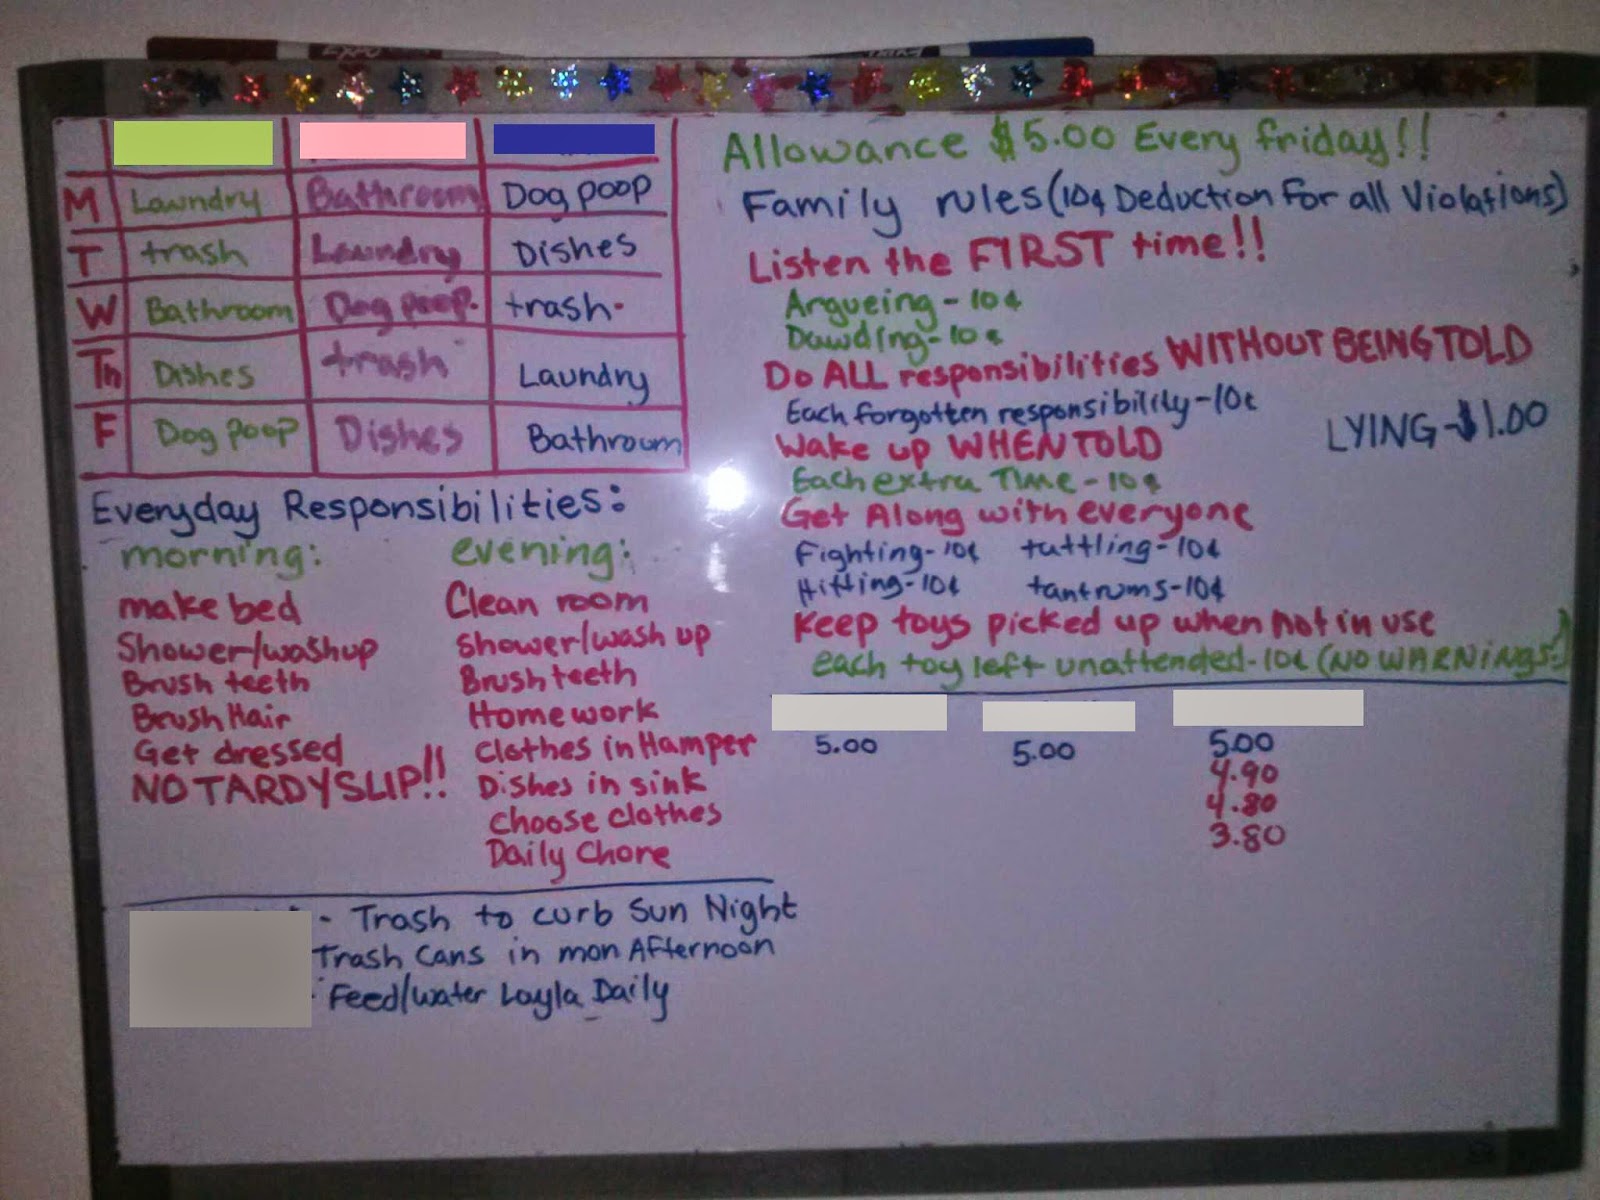 EXPO
M Lawndry Bathroom Dog poop
T trash Lawndry Dishes
W Bathroom Dog poop. trash.
Th Dishes trash Laundry
F Dog poop Dishes Bathroom
Everyday Responsibilities:
morning:
make bed
Shower/washup
Brush teeth
Brush Hair
Get dressed
NO TARDY SLIP!!
evening:
Clean room
Shower/wash up
Brush teeth
Homework
Clothes in Hamper
Dishes in sink
Choose clothes
Daily Chore
- Trash to curb Sun Night
Trash Cans in mon Afternoon
- Feed/water Layla Daily
Allowance $5.00 Every friday!!
Family rules (10¢ Deduction For all Violations)
Listen the FIRST time!!
Argueing - 10¢
Dawdling - 10¢
Do ALL responsibilities WITHOUT BEING TOLD
Each forgotten responsibility - 10¢
LYING - $1.00
Wake up WHEN TOLD
Each extra TIME - 10¢
Get Along with everyone
Fighting - 10¢ tattling - 10¢
Hitting - 10¢ tantrums - 10¢
Keep toys picked up when not in use
each toy left unattended - 10¢ (NO WARNINGS!)
5.00 5.00 5.00
4.90
4.80
3.80